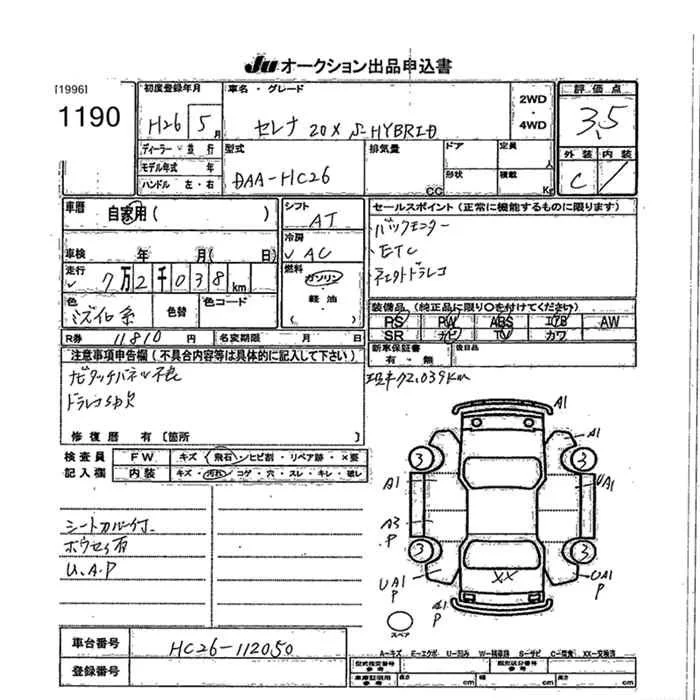 Ju オークション出品申込書
[1996]
1190
初度登録年月
H26 5 月
車名・グレード
セレナ 20X S-HYBRID
2WD
・
4WD
評価点
3.5
外装 内装
C
ディーラー・並行
モデル年式 年
ハンドル 左・右
型式
DAA-HC26
排気量
CC
ドア
形状
定員
人
積載
Kg
車歴
自家用( )
シフト
AT
セールスポイント(正常に機能するものに限ります)
バックモニター
ETC
車検 年 月( 日)
冷房
AC
走行
7万2千038km
燃料
ガソリン
・
軽油
・
( )
色
色替
色コード
装備品(純正品に限り○を付けてください)
PS PW ABS エアB AW
SR ナビ TV カワ
R券 11810円
名変期限 月 日
新車保証書
有・無
後日品
注意事項申告欄(不具合内容等は具体的に記入して下さい)
ナビタッチパネル不良
現車72,039Km
修復歴 有〔箇所 〕
検査員
記入欄
FW キズ・飛石・ヒビ割・リペア跡・×要
内装 キズ・汚れ・コゲ・穴・スレ・キレ・破レ
A1
A1
3 3
A1 UA1
A3
P
3 3
UA1
P
XX
UA1
P
A1
P
スペア
シートカバー付
U.A.P
車台番号 HC26-112050
登録番号
A=キズ E=エクボ U=凹み W=補修跡 S=サビ C=腐食 XX=交換済
型式指定番号
参考
類別区分番号
参考
車庫証明
参考
長さ cm
幅 cm
高さ cm